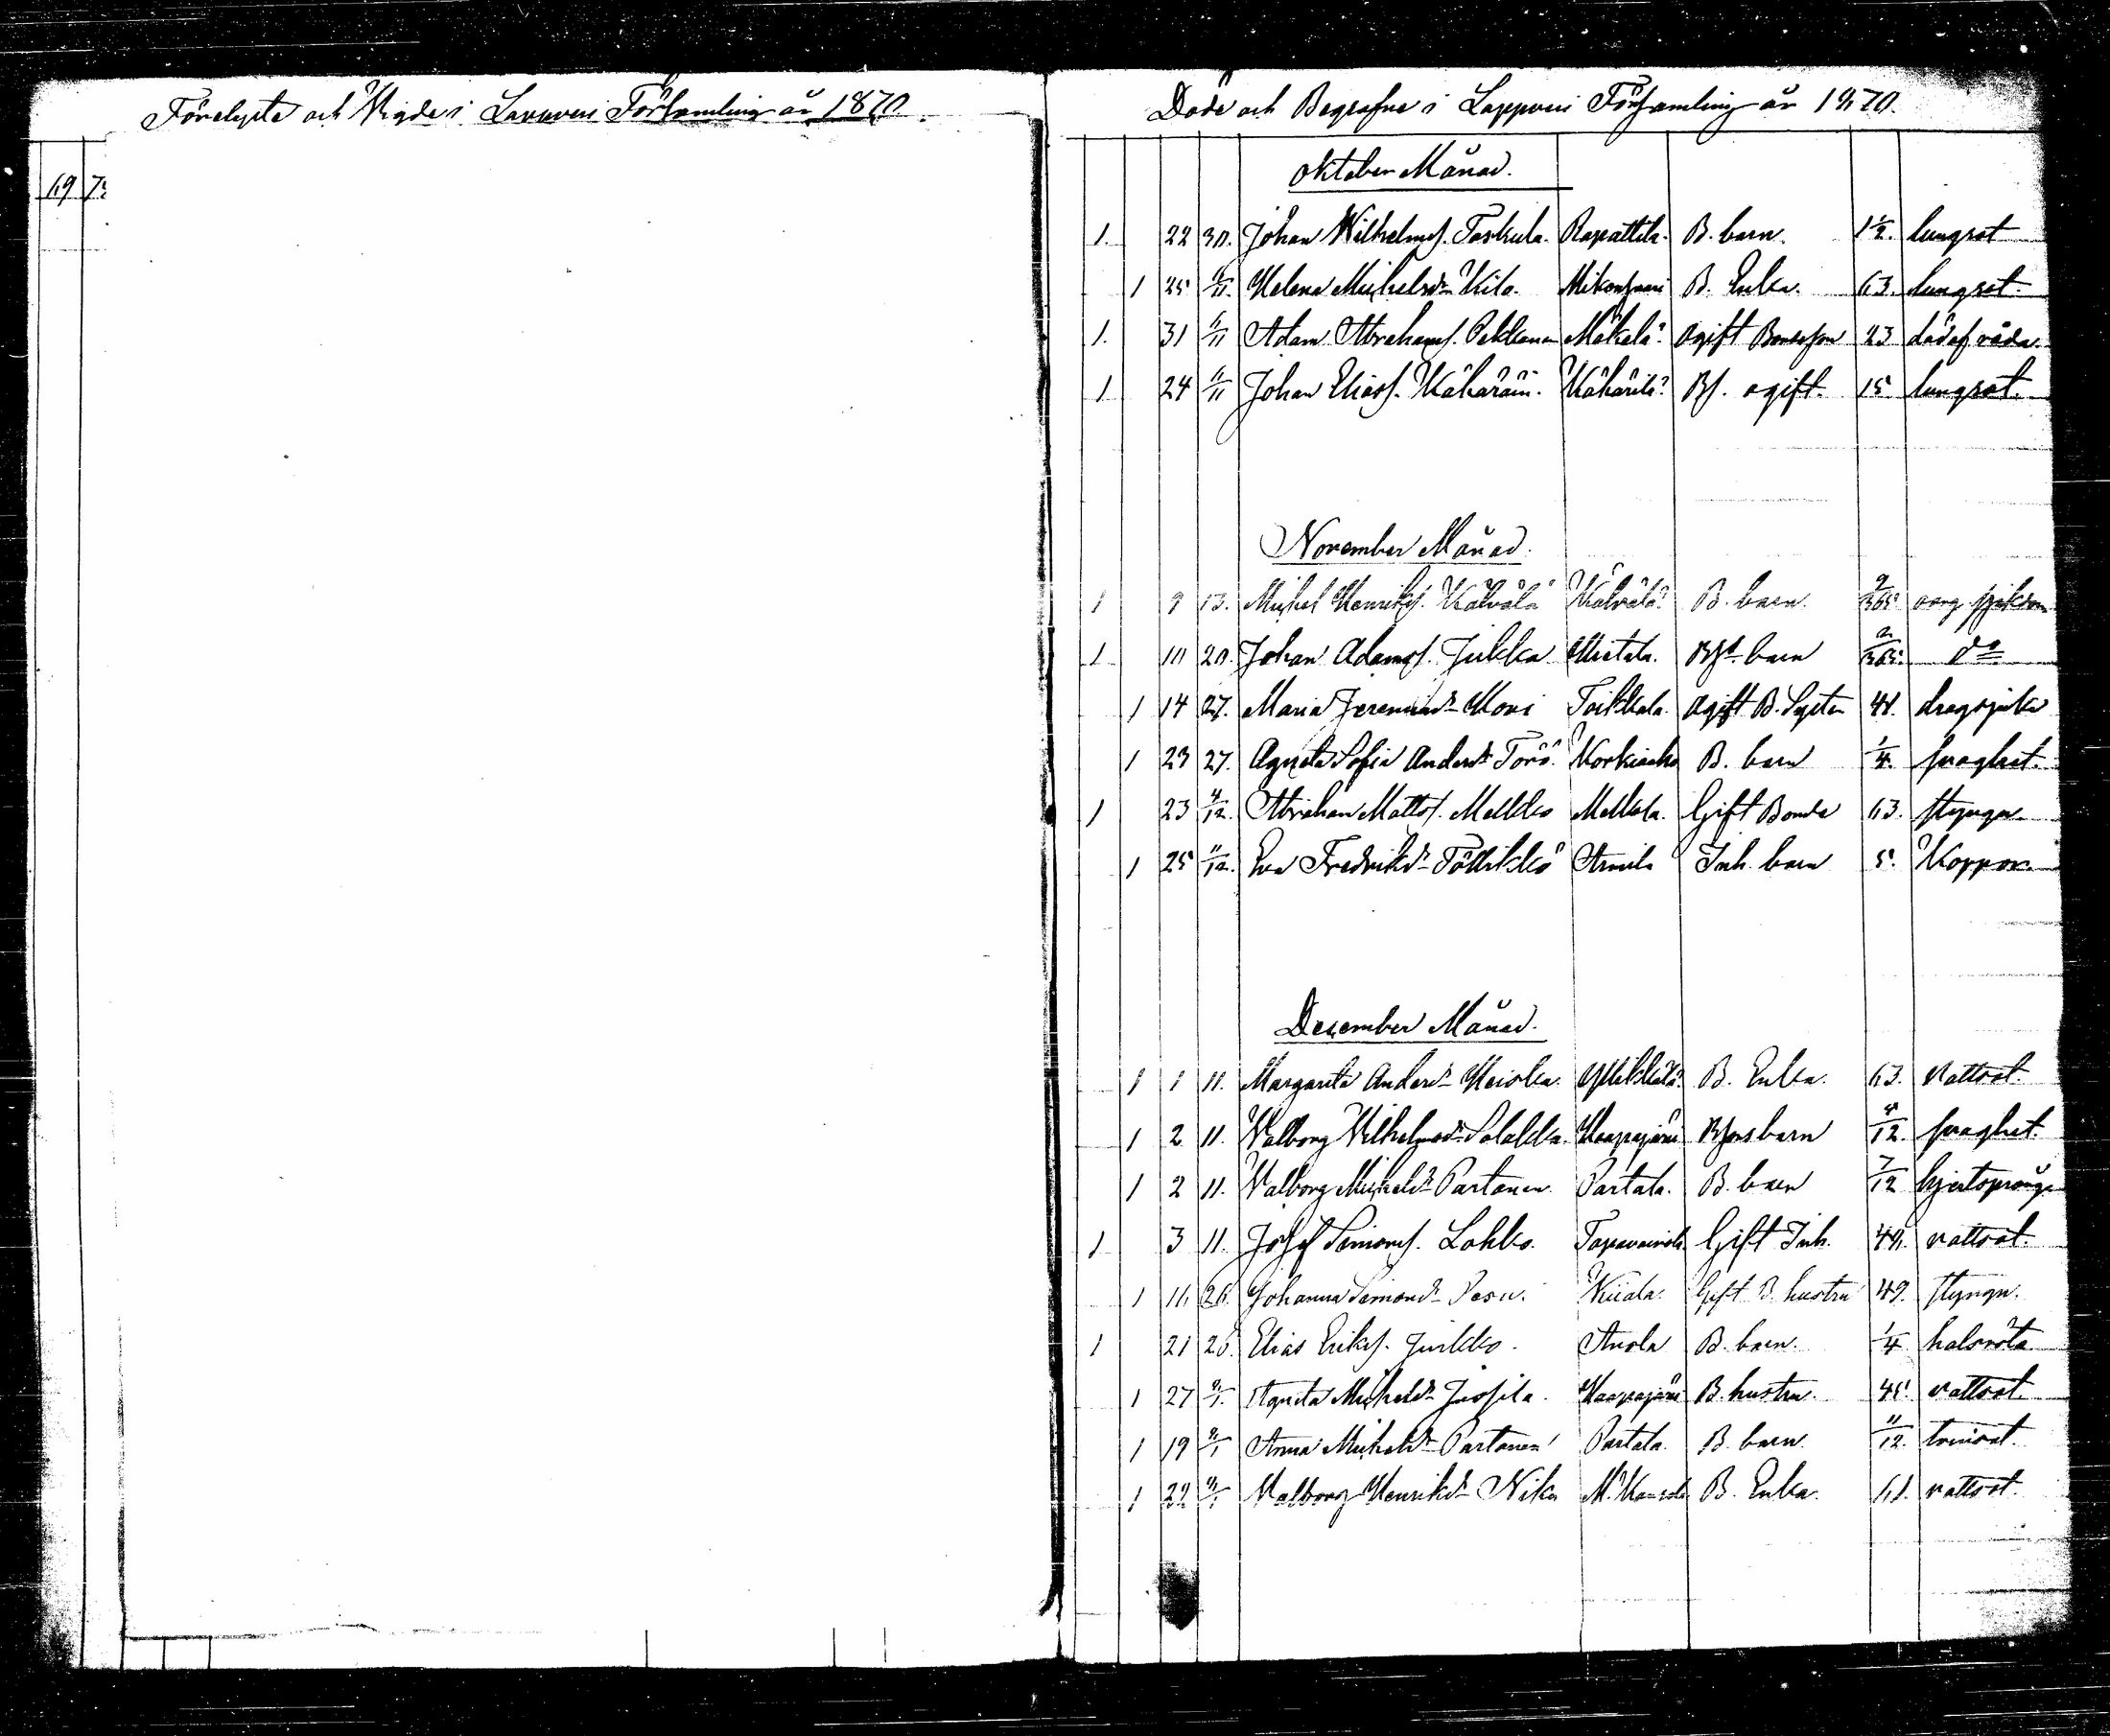 Förelyste och Vigde i Lappvesi Församling år 1870.
69 73
Döde och Begrafne i Lappvesi Församling år 1870.
Oktober Månad.
1. 22 30. Johan Wilhelmsf. Taskula. Rapattila. B. barn. 1½. lungsot
1 25 Helena Michelsdr Kilo. B. Enka. 63. lungsot.
1. 31 6/11 Adam Abrahamsf. Pekkanen Mäkelä. ogift Bondeson 23 dödaf våda.
1 24 6/11 Johan Eliasf. Kähäräin. Kähärilä. Bf. ogift. 15 lungsot.
November Månad.
1 9 13. Michel Henriksf. Kälvälä Kälvälä. B. barn. 9/365
1 10 20. Johan Adamsf. Jukka barn /365. do
1 14 27. Maria Jeremiasdr Hovi Toikkala. ogift B. Syster 41. dragsjuka
1 23 27. Agneta Sofia Andersdr Törö. Korkiaaho B. barn 1/4. svaghet.
1 23 4/12. Abraham Mattsf. Melkko Melkola. Gift Bonde 63. styngn.
1 25 11/12. Eva Fredriksdr Pöllikkö Armila Inh. barn 5. Koppor.
December Månad.
1 1 11. Margareta Andersdr Heiska. B. Enka. 63. vattsot.
1 2 11. Walborg Wilhelmsdr Salakka. Haapajärvi barn /12. svaghet.
1 2 11. Walborg Michelsdr Partanen. Partala. B. barn 7/12 hjertsprång
1 3 11. Josef Simonsf. Lohko. Tapavainola. Gift Inh. vattsot.
1 16 26. Johanna Simonsdr Pesu. Gift B. hustru 49. styngn.
1 21 26. Elias Eriksf. Jurkko. Anola B. barn. 1/4 halsröta
1 27 Agneta Michelsdr Haapajärvi B. hustru. 45. vattsot.
1 19 Anna Michelsdr Partanen Partala. B. barn. 11/12.
1 22 Walborg Henriksdr Nika B. Enka. 61. vattsot.